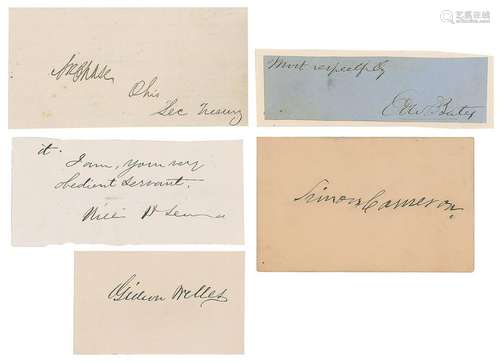 SPChase,
Ohio
Sec Treasury
Most respectfully
Edw. Bates
it.
I am, your very
obedient servant.
Willi H Sew
Simon Cameron
Gideon Welles